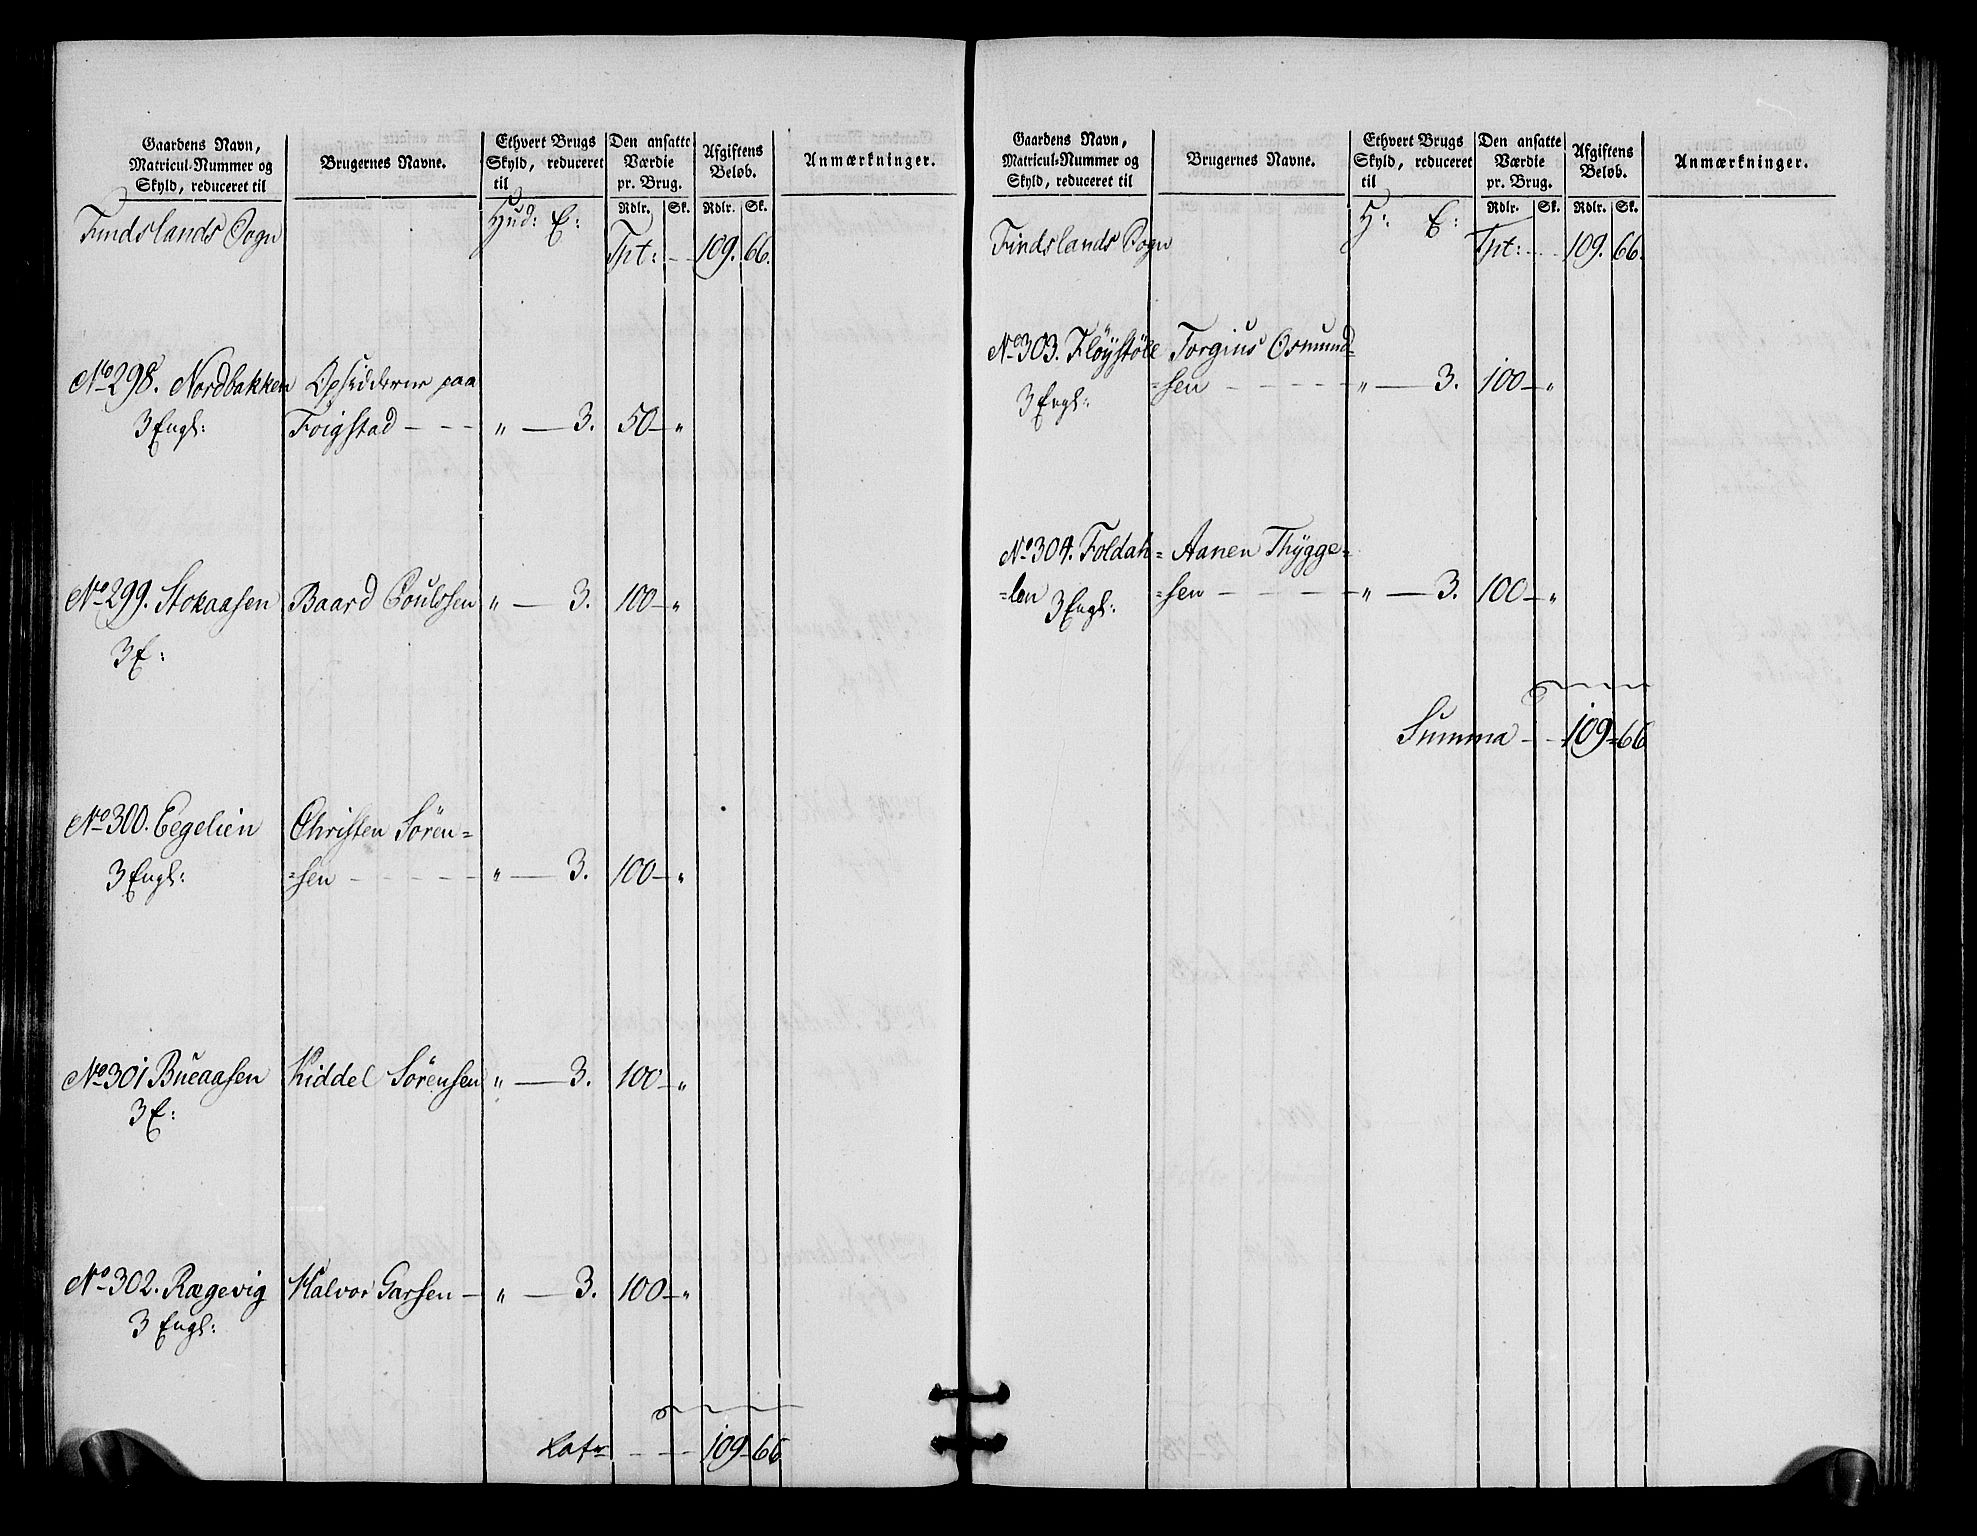 Gaardens Navn,
Matricul-Nummer og
Skyld, reduceret til
Brugernes Navne.
Ethvert Brugs
Skyld, reduceret
til
Den ansatte
Værdie
pr. Brug.
Afgiftens
Beløb.
Anmærkninger.
Rdlr. Sk. Rdlr. Sk.
Findslands Sogn Hud: E:
Tpt: -- 109. 66.
No 298. Nordbakken Opsidderne paa
3 Engl: Foigstad --- " — 3. 50 — "
No 299. Stokaasen Baard Poulssen " — 3. 100 — "
3 E:
No 300. Eegelien Christen Sören=
3 Engl: =sen ---- " — 3. 100 — "
No 301 Bueaasen Kiddel Sörensen " — 3. 100 — "
3 E:
No 302. Ragevig Halvor Garsen — " — 3. 100 — "
3 Engl:
Latr --- 109 - 66
Gaardens Navn,
Matricul-Nummer og
Skyld, reduceret til
Brugernes Navne.
Ethvert Brugs
Skyld, reduceret
til
Den ansatte
Værdie
pr. Brug.
Afgiftens
Beløb.
Anmærkninger.
Rdlr. Sk. Rdlr. Sk.
Findslands Sogn H: E:
Tpt: --- 109. 66.
No 303. Fløystöle Torgius Osmund=
3 Engl: =sen ----- " — 3. 100 — "
No 304. Foldah= Aanen Thÿgge=
=len =sen ---- " — 3. 100 — "
3 Engl:
Summa -- 109 - 66